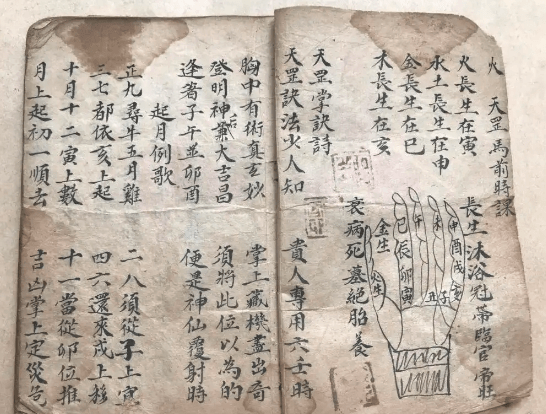 火 天罡馬前時課
火長生在寅 長生沐浴冠帶臨官帝旺
水土長生在申
金長生在巳
木長生在亥 衰病死墓絕胎養
申酉戌亥
未
午
巳辰卯寅
丑子
金生
天罡掌訣詩
天罡訣法少人知 貴人專用六壬時
胸中有術真玄妙 掌上藏機盡出奇
登明神后大吉昌 須將此位以為的
逢着子午並卯酉 便是神仙覆射時
起月例歌
正九尋牛五月雞 二八須從子上
三七都依亥上起 四六還來戌上移
十月十二寅上數 十一當從卯位推
月上起初一順去 吉凶掌上定災